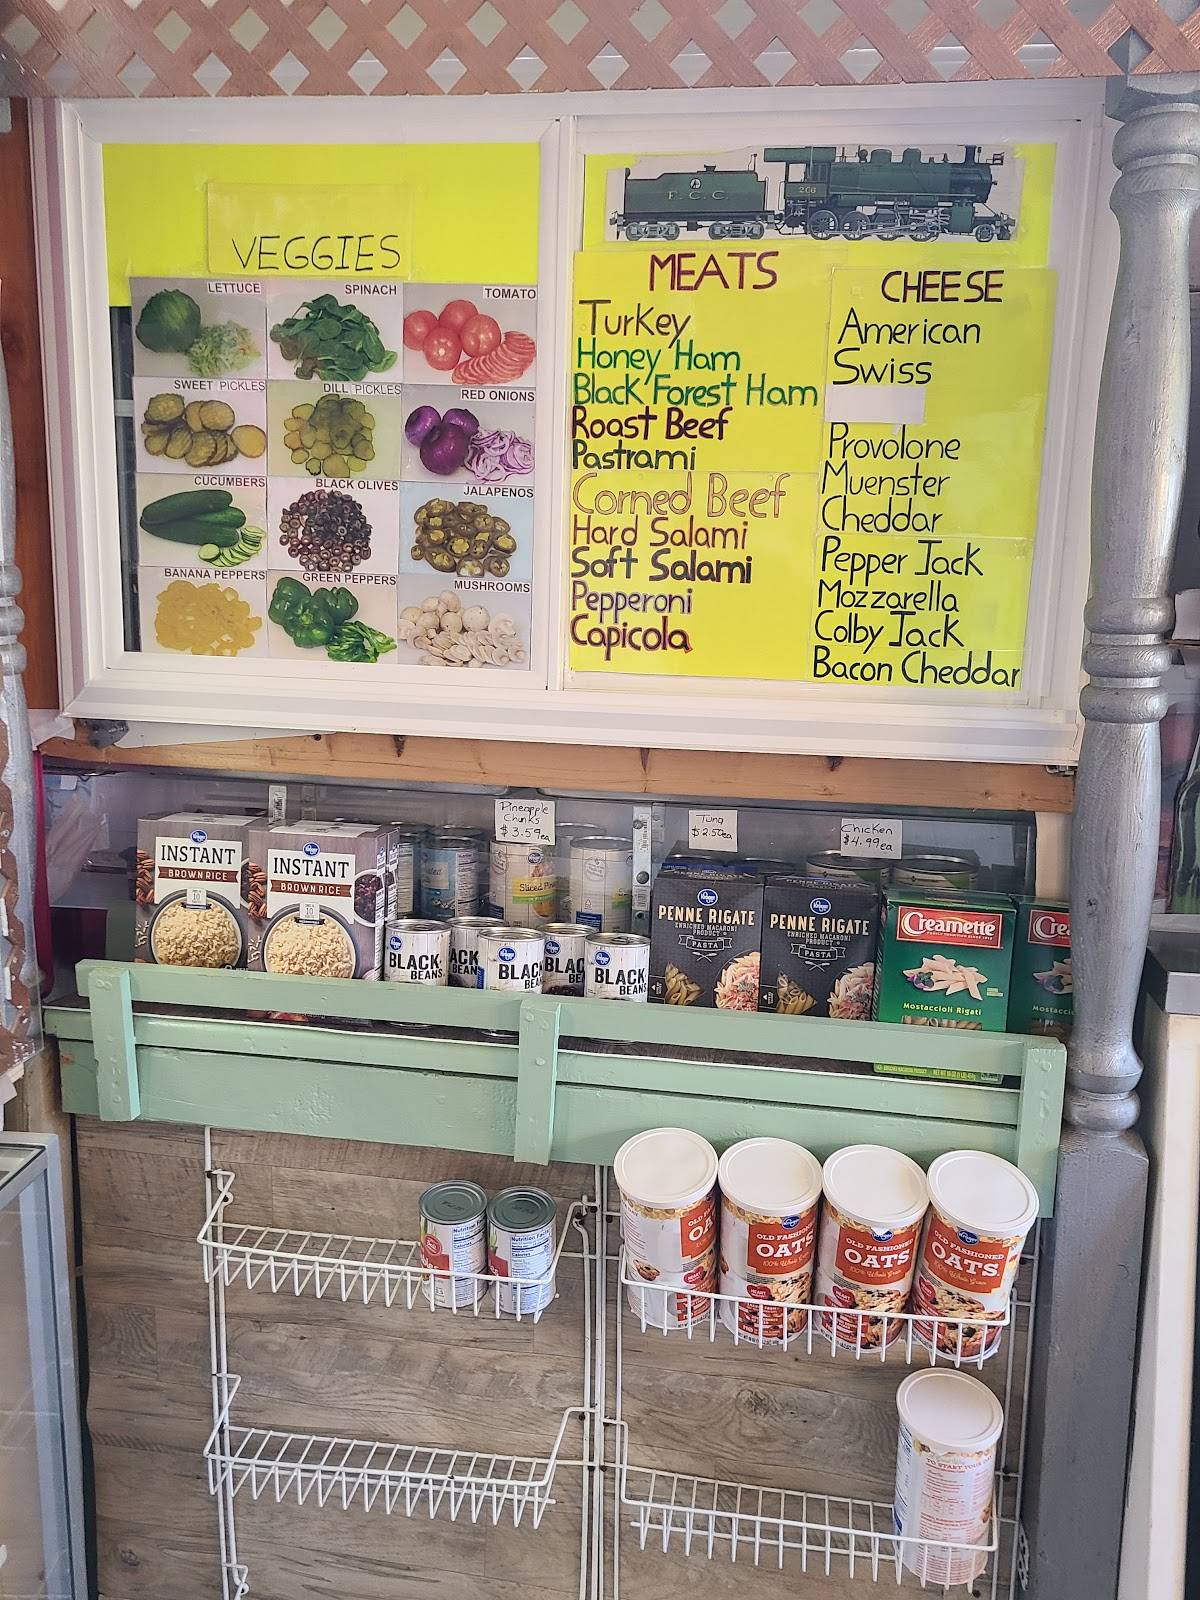 VEGGIES
LETTUCE
SPINACH
TOMATO
SWEET PICKLES
DILL PICKLES
RED ONIONS
CUCUMBERS
BLACK OLIVES
JALAPENOS
BANANA PEPPERS
GREEN PEPPERS
MUSHROOMS
206
MEATS
Turkey
Honey Ham
Black Forest Ham
Roast Beef
Pastrami
Corned Beef
Hard Salami
Soft Salami
Pepperoni
Capicola
CHEESE
American
Swiss
Provolone
Muenster
Cheddar
Pepper Jack
Mozzarella
Colby Jack
Bacon Cheddar
Pineapple
Chunks
$3.59ea
Tuna
$2.50ea
Chicken
$4.99ea
INSTANT
BROWN RICE
INSTANT
BROWN RICE
BLACK
BEANS
BLACK
BEANS
BLACK
BEANS
PENNE RIGATE
ENRICHED MACARONI
PRODUCT
PASTA
PENNE RIGATE
ENRICHED MACARONI
PRODUCT
PASTA
Creamette
Mostaccioli Rigati
Nutrition Facts
OLD FASHIONED
OATS
100% Whole Grain
OLD FASHIONED
OATS
100% Whole Grain
OLD FASHIONED
OATS
100% Whole Grain